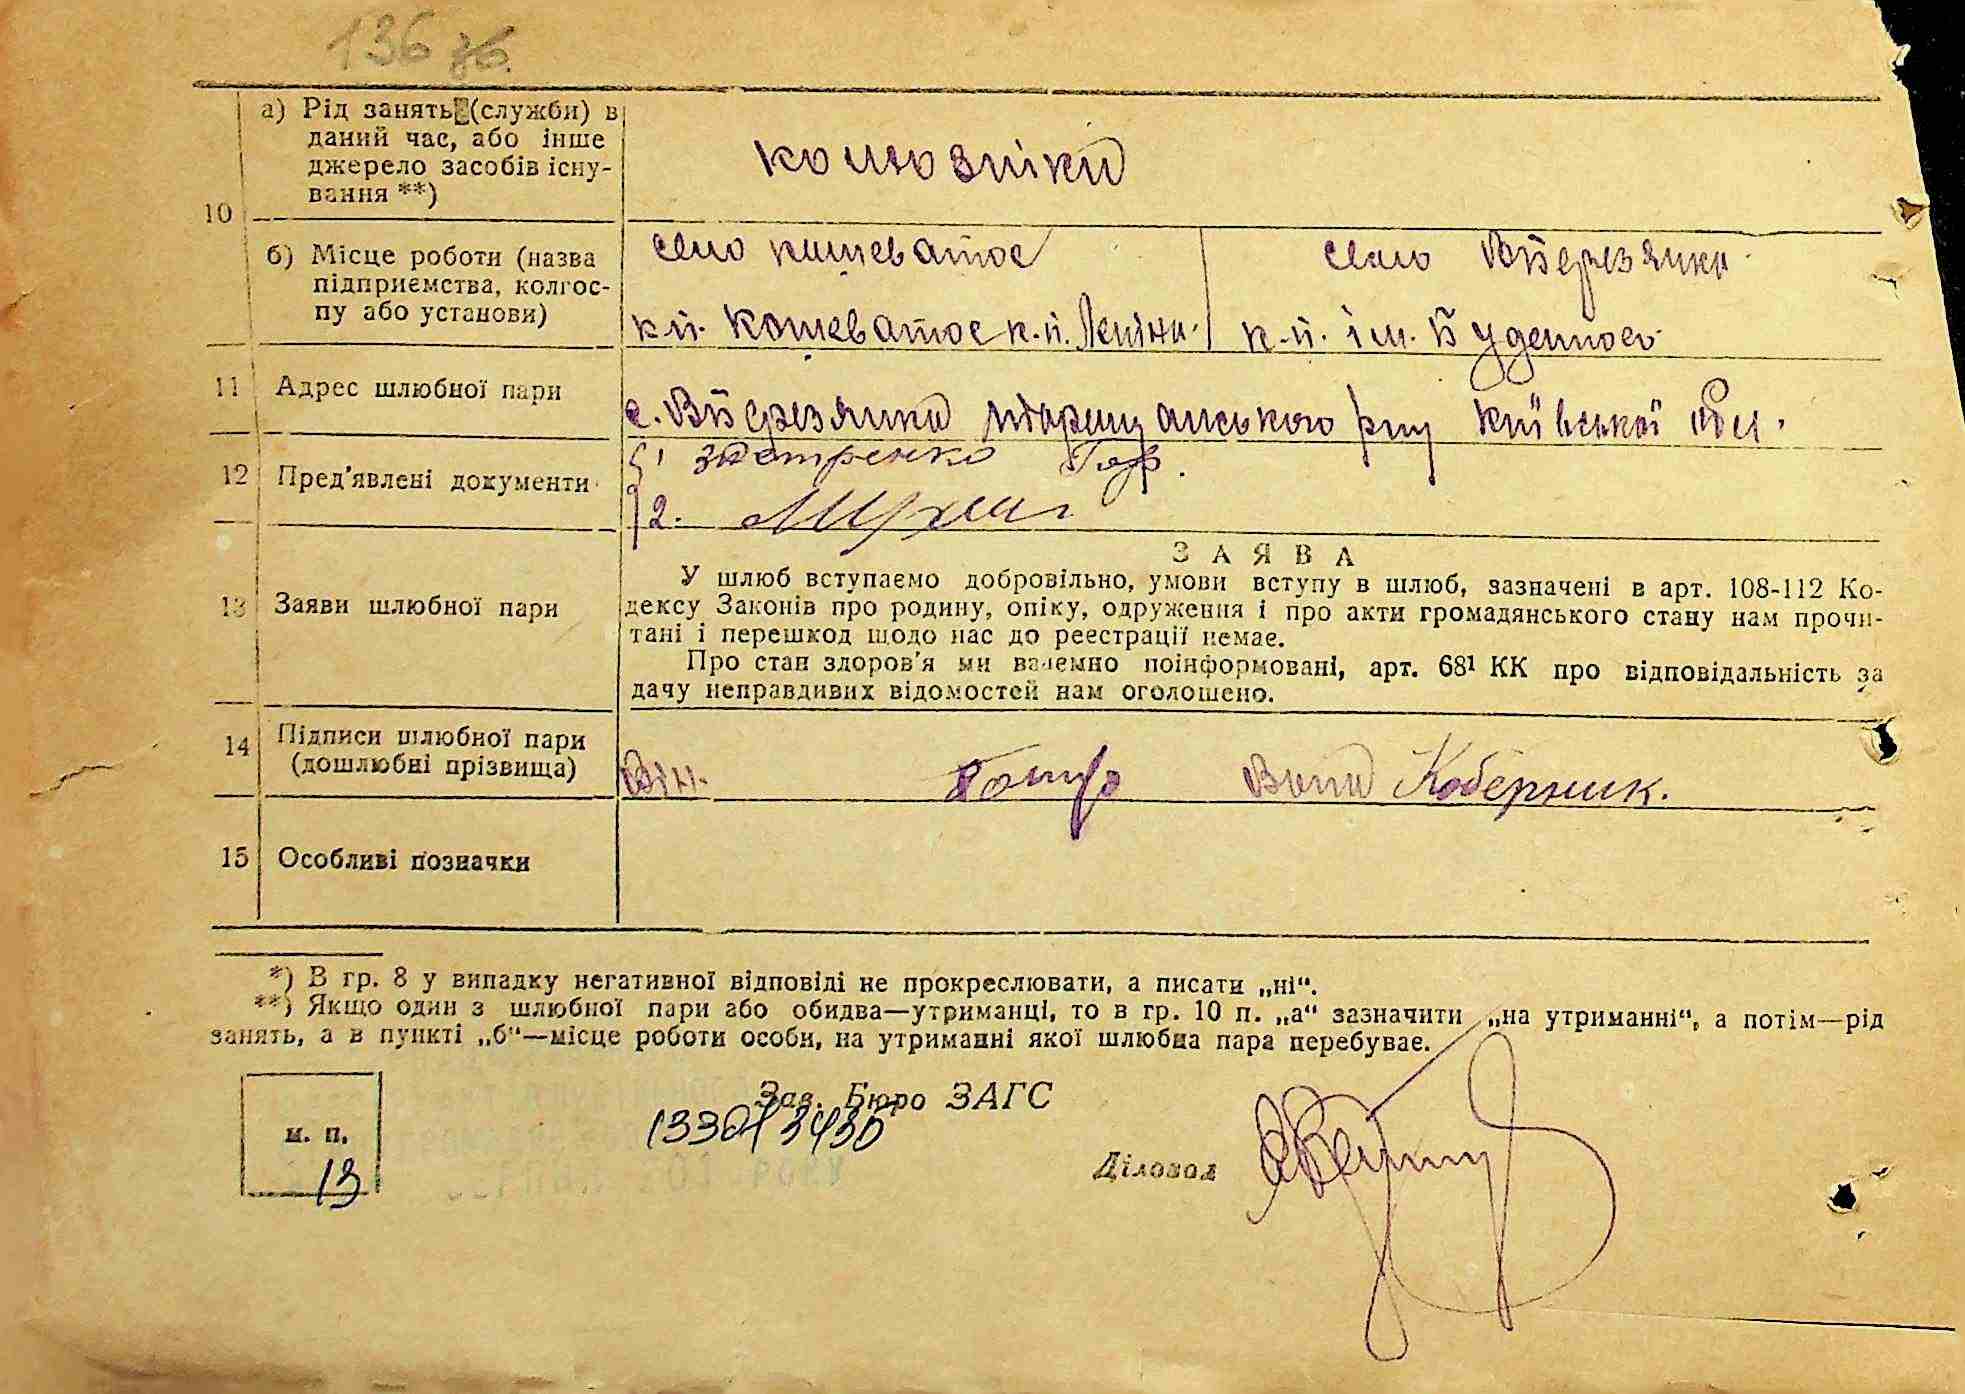 136 зв.
10
а) Рід занять (служби) в
даний час, або інше
джерело засобів існу-
вання **)
колхозніки
б) Місце роботи (назва
підприємства, колгос-
пу або установи)
село кошеватое
к.п. Кошеватое к.п. Леніни
село Березянки
к.п. ім. Буденого
11 Адрес шлюбної пари
с. Березянки Таращанського р-ну Київської обл.
12 Пред'явлені документи
1
2.
13 Заяви шлюбної пари
ЗАЯВА
У шлюб вступаємо добровільно, умови вступу в шлюб, зазначені в арт. 108-112 Ко-
дексу Законів про родину, опіку, одруження і про акти громадянського стану нам прочи-
тані і перешкод щодо нас до реєстрації немає.
Про стан здоров'я ми взаємно поінформовані, арт. 68¹ КК про відповідальність за
дачу неправдивих відомостей нам оголошено.
14 Підписи шлюбної пари
(дошлюбні прізвища)
Він. Вона Коберник.
15 Особливі позначки
*) В гр. 8 у випадку негативної відповіді не прокреслювати, а писати „ні“.
**) Якщо один з шлюбної пари або обидва—утриманці, то в гр. 10 п. „а“ зазначити „на утриманні“, а потім—рід
занять, а в пункті „б“—місце роботи особи, на утриманні якої шлюбна пара перебуває.
Зав. Бюро ЗАГС
м. п.
13
Діловод